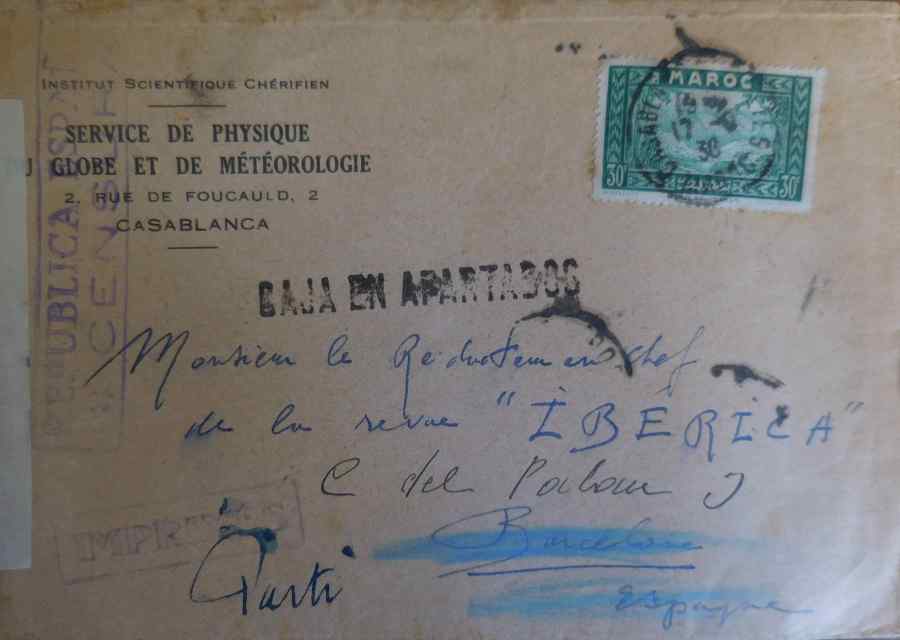 INSTITUT SCIENTIFIQUE CHÉRIFIEN
SERVICE DE PHYSIQUE
U GLOBE ET DE MÉTÉOROLOGIE
2, RUE DE FOUCAULD, 2
CASABLANCA
MAROC
30c 30c
REPUBLICA ESPA
CENSURA
CAJA EN APARTADOS
Monsieur le Redacteur en chef
de la revue "IBERICA"
C del Palau
Barcelone
Espagne
IMPRIMES
Parti